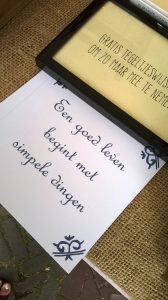 GRATIS TEGELTJESWIJSHEID
OM ZO MAAR MEE TE NEMEN
Een goed leven
begint met
simpele dingen